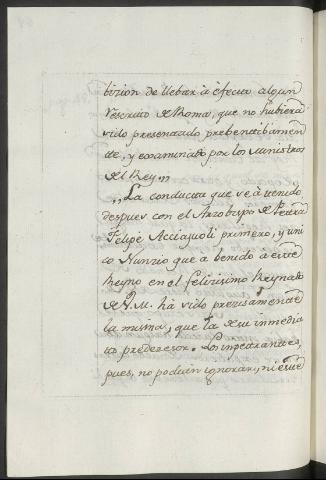 bizion de llebar à efecto algun
rescrito de Roma, que no hubiera
sido presentado prebentibamen
te, y examinado por los Ministros
del Rey,,
,,La conducta que se à tenido
despues con el Arzobispo de Petra
Felipe Acciajuoli primero, y uni
co Nunzio que à benido à este
Reyno en el felicisimo Reynado
de V.M. hà sido precisamente
la misma, que la de su inmedia
to predecesor. Los impetrantes,
pues, no podian ignorar, ni este